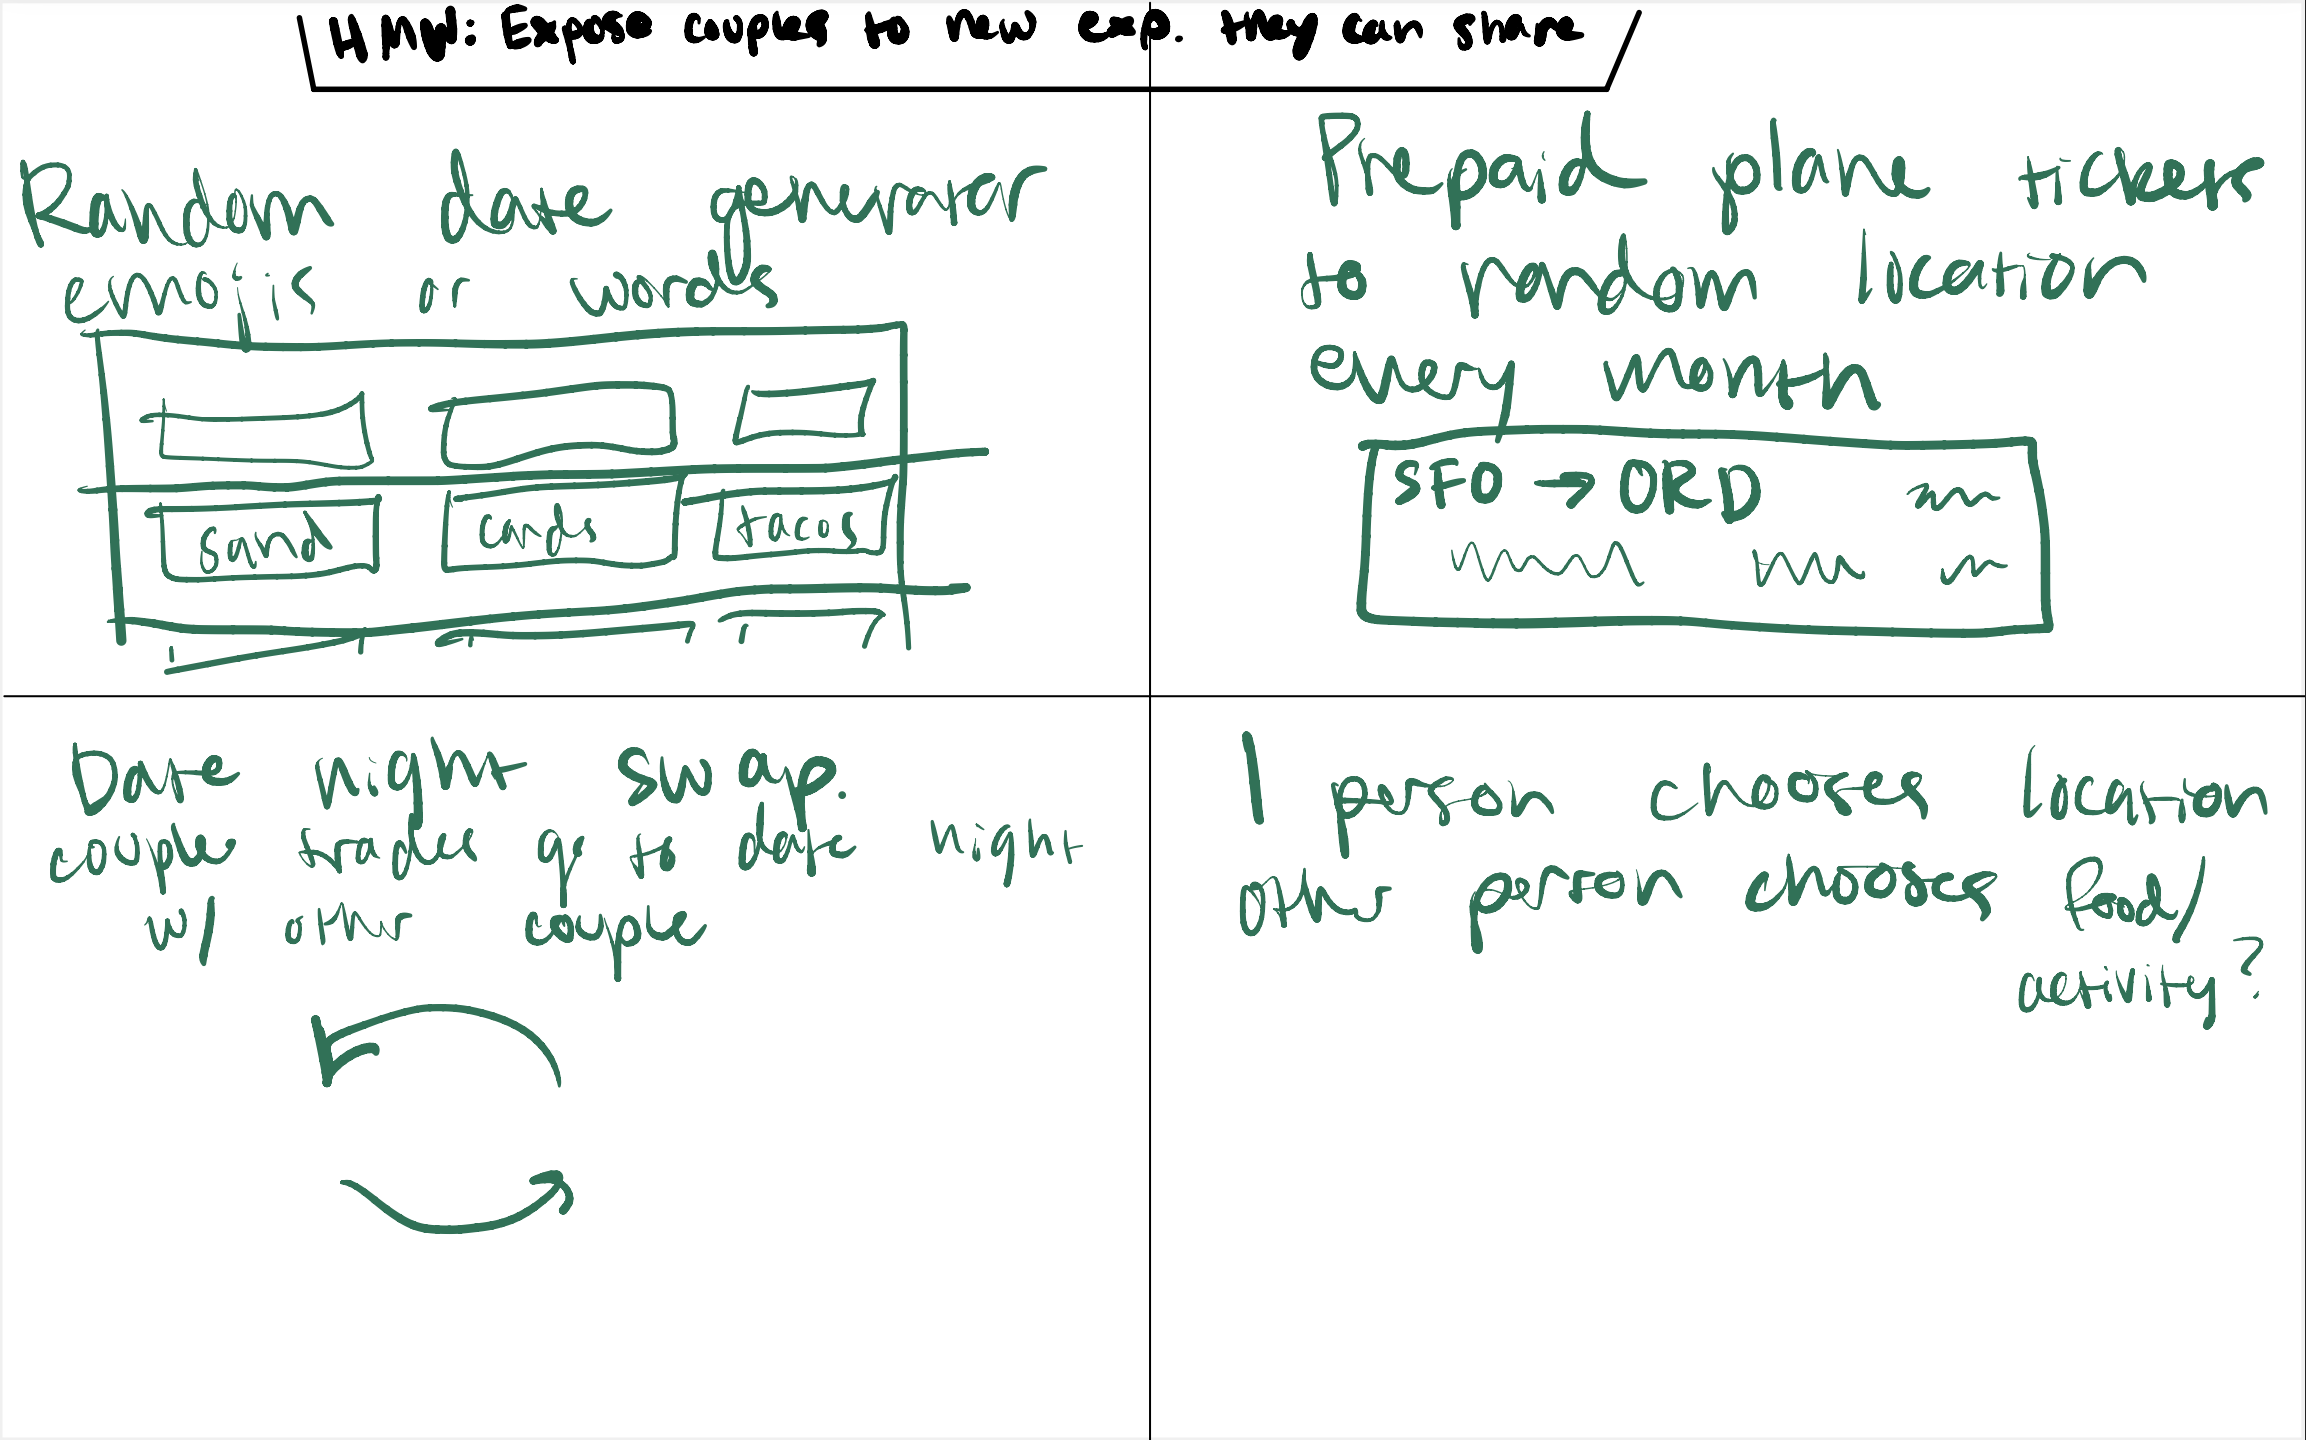 HMW: Expose couples to new exp. they can share
Random date generator
emojis or words
sand cards tacos
Prepaid plane tickets
to random location
every month
SFO → ORD
Date night swap.
couple trades go to date night
w/ other couple
1 person chooses location
other person chooses food/
activity?